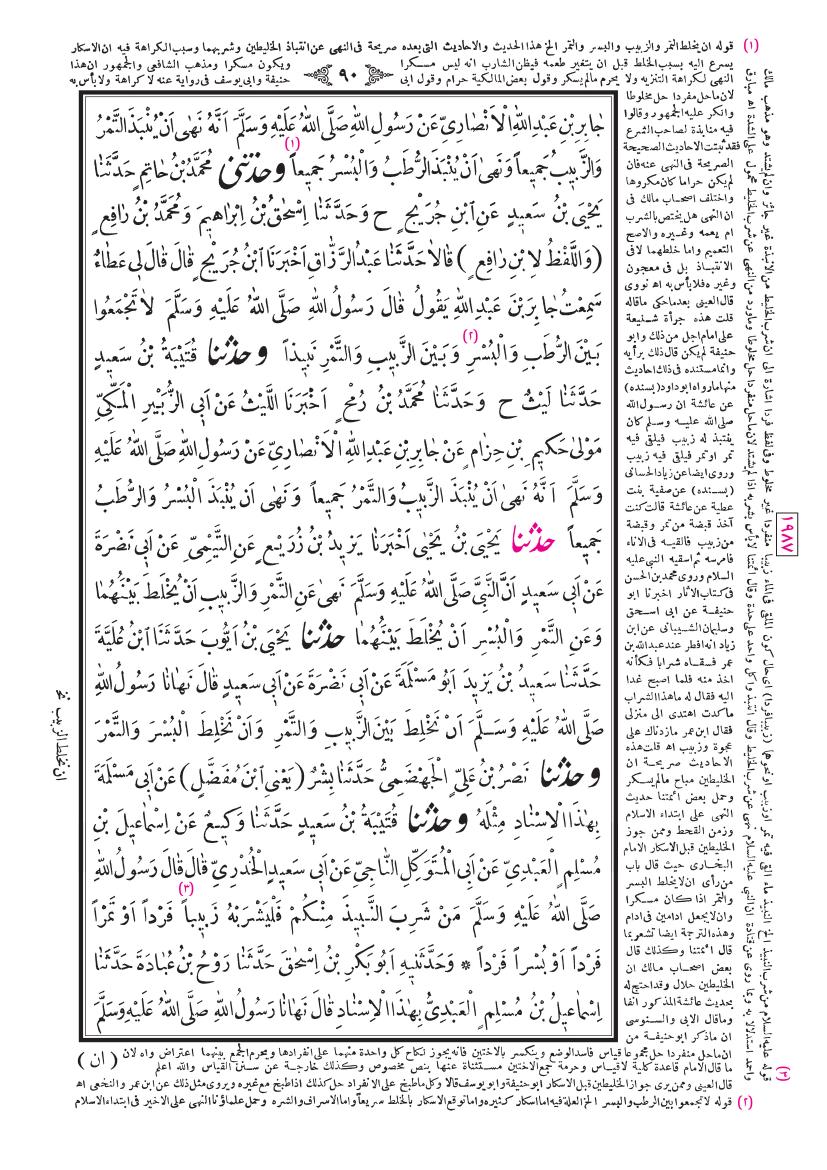 (١) قوله ان يخلط التمر والزبيب والبسر والتمر الخ هذا الحديث والاحاديث التى بعده صريحة فى النهى عن انتباذ الخليطين وشربهما وسبب الكراهة فيه ان الاسكار
يسرع اليه بسبب الخلط قبل ان يتغير طعمه فيظن الشارب انه ليس مسكرا ويكون مسكرا ومذهب الشافعى والجمهور ان هذا
النهى لكراهة التنزيه ولا يحرم مالم يسكر وقول بعض المالكية حرام وقول ابى حنيفة وابى يوسف فى رواية عنه لا كراهة ولا بأس به
٩٠
جَابِرِ بْنِ عَبْدِ اللهِ الْاَنْصَارِيِّ عَنْ رَسُولِ اللهِ صَلَّى اللهُ عَلَيْهِ وَسَلَّمَ اَنَّهُ نَهٰى اَنْ يُنْبَذَ التَّمْرُ
وَالزَّبِيبُ جَمِيعاً وَنَهٰى اَنْ يُنْبَذَ الرُّطَبُ وَالْبُسْرُ جَمِيعاً (١) وحَدَّثَنِى مُحَمَّدُ بْنُ حَاتِمٍ حَدَّثَنَا
يَحْيَى بْنُ سَعِيدٍ عَنِ ابْنِ جُرَيْجٍ ح وَحَدَّثَنَا اِسْحٰقُ بْنُ اِبْرَاهِيمَ وَمُحَمَّدُ بْنُ رَافِعٍ
(وَاللَّفْظُ لِابْنِ رَافِعٍ) قَالَا حَدَّثَنَا عَبْدُ الرَّزَّاقِ اَخْبَرَنَا ابْنُ جُرَيْجٍ قَالَ قَالَ لِى عَطَاءٌ
سَمِعْتُ جَابِرَ بْنَ عَبْدِ اللهِ يَقُولُ قَالَ رَسُولُ اللهِ صَلَّى اللهُ عَلَيْهِ وَسَلَّمَ لَا تَجْمَعُوا
بَيْنَ الرُّطَبِ وَالْبُسْرِ (٢) وَبَيْنَ الزَّبِيبِ وَالتَّمْرِ نَبِيذاً وحَدَّثَنَا قُتَيْبَةُ بْنُ سَعِيدٍ
حَدَّثَنَا لَيْثٌ ح وَحَدَّثَنَا مُحَمَّدُ بْنُ رُمْحٍ اَخْبَرَنَا اللَّيْثُ عَنْ اَبِى الزُّبَيْرِ الْمَكِّيِّ
مَوْلٰى حَكِيمِ بْنِ حِزَامٍ عَنْ جَابِرِ بْنِ عَبْدِ اللهِ الْاَنْصَارِيِّ عَنْ رَسُولِ اللهِ صَلَّى اللهُ عَلَيْهِ
وَسَلَّمَ اَنَّهُ نَهٰى اَنْ يُنْبَذَ الزَّبِيبُ وَالتَّمْرُ جَمِيعاً وَنَهٰى اَنْ يُنْبَذَ الْبُسْرُ وَالرُّطَبُ
جَمِيعاً حَدَّثَنَا يَحْيَى بْنُ يَحْيٰى اَخْبَرَنَا يَزِيدُ بْنُ زُرَيْعٍ عَنِ التَّيْمِيِّ عَنْ اَبِى نَضْرَةَ
عَنْ اَبِى سَعِيدٍ اَنَّ النَّبِيَّ صَلَّى اللهُ عَلَيْهِ وَسَلَّمَ نَهٰى عَنِ التَّمْرِ وَالزَّبِيبِ اَنْ يُخْلَطَ بَيْنَهُمَا
وَعَنِ التَّمْرِ وَالْبُسْرِ اَنْ يُخْلَطَ بَيْنَهُمَا حَدَّثَنَا يَحْيَى بْنُ اَيُّوبَ حَدَّثَنَا ابْنُ عُلَيَّةَ
حَدَّثَنَا سَعِيدُ بْنُ يَزِيدَ اَبُو مَسْلَمَةَ عَنْ اَبِى نَضْرَةَ عَنْ اَبِى سَعِيدٍ قَالَ نَهَانَا رَسُولُ اللهِ
صَلَّى اللهُ عَلَيْهِ وَسَلَّمَ اَنْ نَخْلِطَ بَيْنَ الزَّبِيبِ وَالتَّمْرِ وَاَنْ نَخْلِطَ الْبُسْرَ وَالتَّمْرَ
وحَدَّثَنَا نَصْرُ بْنُ عَلِيٍّ الْجَهْضَمِيُّ حَدَّثَنَا بِشْرٌ (يَعْنِى ابْنَ مُفَضَّلٍ) عَنْ اَبِى مَسْلَمَةَ
بِهٰذَا الْاِسْنَادِ مِثْلَهُ وحَدَّثَنَا قُتَيْبَةُ بْنُ سَعِيدٍ حَدَّثَنَا وَكِيعٌ عَنْ اِسْمَاعِيلَ بْنِ
مُسْلِمٍ الْعَبْدِيِّ عَنْ اَبِى الْمُتَوَكِّلِ النَّاجِيِّ عَنْ اَبِى سَعِيدٍ الْخُدْرِيِّ قَالَ قَالَ رَسُولُ اللهِ
صَلَّى اللهُ عَلَيْهِ وَسَلَّمَ مَنْ شَرِبَ النَّبِيذَ مِنْكُمْ فَلْيَشْرَبْهُ زَبِيباً (٣) فَرْداً اَوْ تَمْراً
فَرْداً اَوْ بُسْراً فَرْداً * وَحَدَّثَنِيهِ اَبُو بَكْرِ بْنُ اِسْحٰقَ حَدَّثَنَا رَوْحُ بْنُ عُبَادَةَ حَدَّثَنَا
اِسْمَاعِيلُ بْنُ مُسْلِمٍ الْعَبْدِيُّ بِهٰذَا الْاِسْنَادِ قَالَ نَهَانَا رَسُولُ اللهِ صَلَّى اللهُ عَلَيْهِ وَسَلَّمَ
لان ماحل مفردا حل مخلوطا
وانكر عليه الجمهور وقالوا
فيه منابذة لصاحب الشرع
فقد ثبتت الاحاديث الصحيحة
الصريحة فى النهى عنه فان
لم يكن حراما كان مكروها
واختلف اصحاب مالك فى
ان النهى هل يختص بالشرب
ام يعمه وغيره والاصح
التعميم واما خلطهما لا فى
الانتباذ بل فى معجون
وغيره فلا بأس به اه نووى
قال العينى بعد ماحكى ماقاله
قلت هذه جرأة شنيعة
على امام اجل من ذلك وابو
حنيفة لم يكن قال ذلك برأيه
وانما مستنده فى ذلك احاديث
منها مارواه ابوداود (بسنده)
عن عائشة ان رسول الله
صلى الله عليه وسلم كان
ينتبذ له زبيب فيلقى فيه
تمر او تمر فيلقى فيه زبيب
وروى ايضا عن زياد الحسانى
(بسنده) عن صفية بنت
عطية عن عائشة قالت كنت
آخذ قبضة من تمر وقبضة
من زبيب فالقيه فى الاناء
فامرسه ثم اسقيه النبى عليه
السلام وروى محمد بن الحسن
فى كتاب الآثار اخبرنا ابو
حنيفة عن ابى اسحق
وسليمان الشيبانى عن ابن
زياد انه افطر عند عبدالله بن
عمر فسقاه شرابا فكأنه
اخذ منه فلما اصبح غدا
اليه فقال له ماهذا الشراب
ماكدت اهتدى الى منزلى
فقال ابن عمر مازدناك على
عجوة وزبيب اه قلت هذه
الاحاديث صريحة ان
الخليطين مباح مالم يسكر
وحمل بعض ائمتنا حديث
النهى على ابتداء الاسلام
وزمن القحط وممن جوز
الخليطين قبل الاسكار الامام
البخارى حيث قال باب
من رأى ان لا يخلط البسر
والتمر اذا كان مسكرا
وان لا يجعل ادامين فى ادام
وهذه الترجمة ايضا تشعر بما
قال ائمتنا وكذلك قال
بعض اصحاب مالك ان
الخليطين حلال وقد احتج له
بحديث عائشة المذكور انفا
وماقال الابى والسنوسى
ان ماذكر ابو حنيفة من
ان ماحل منفردا حل مجموعا قياس فاسد الوضع وينكسر بالاختين فانه يجوز نكاح كل واحدة منهما على انفرادها ويحرم الجمع بينهما اعتراض واه لان
ما قال الامام قاعدة كلية لا قياس وحرمة جمع الاختين مستثناة عنها بنص مخصوص وكذلك خارجة عن سنن القياس والله اعلم
( ان )
قال العينى وممن يرى جواز الخليطين قبل الاسكار ابو حنيفة وابو يوسف قالا وكل ماطبخ على الانفراد حل كذلك اذا طبخ مع غيره ويروى مثل ذلك عن ابن عمر والنخعى اه
(٢) قوله لا تجمعوا بين الرطب والبسر الخ العلة فيه اما اسكار كثيره واما توقع الاسكار بالخلط سريعا واما الاسراف والشره وحمل علماؤنا النهى على الاخير فى ابتداء الاسلام
(٣) قوله عليه السلام من شرب النبيذ
١٩٨٧
ان نخلط الزبيب نخ